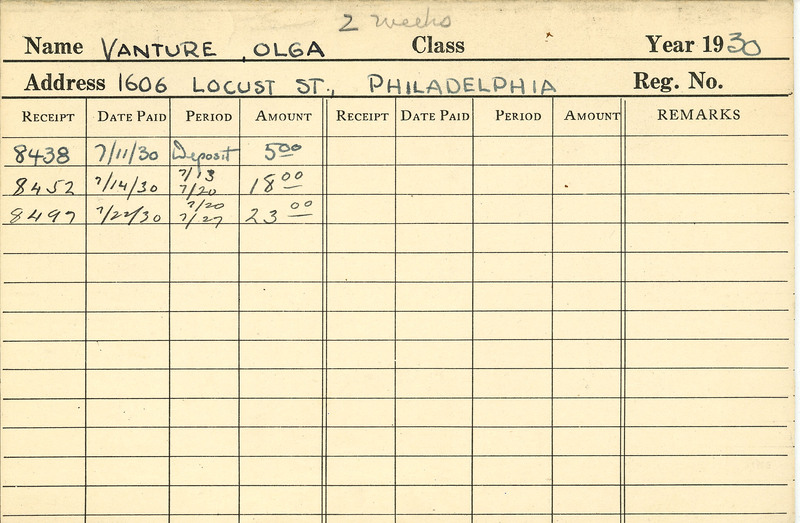 2 weeks
Name VANTURE, OLGA Class Year 1930
Address 1606 LOCUST ST., PHILADELPHIA Reg. No.
RECEIPT DATE PAID PERIOD AMOUNT RECEIPT DATE PAID PERIOD AMOUNT REMARKS
8438 7/11/30 Deposit 5.00
8452 7/14/30 7/13 7/20 18.00
8497 7/22/30 7/20 7/27 23.00